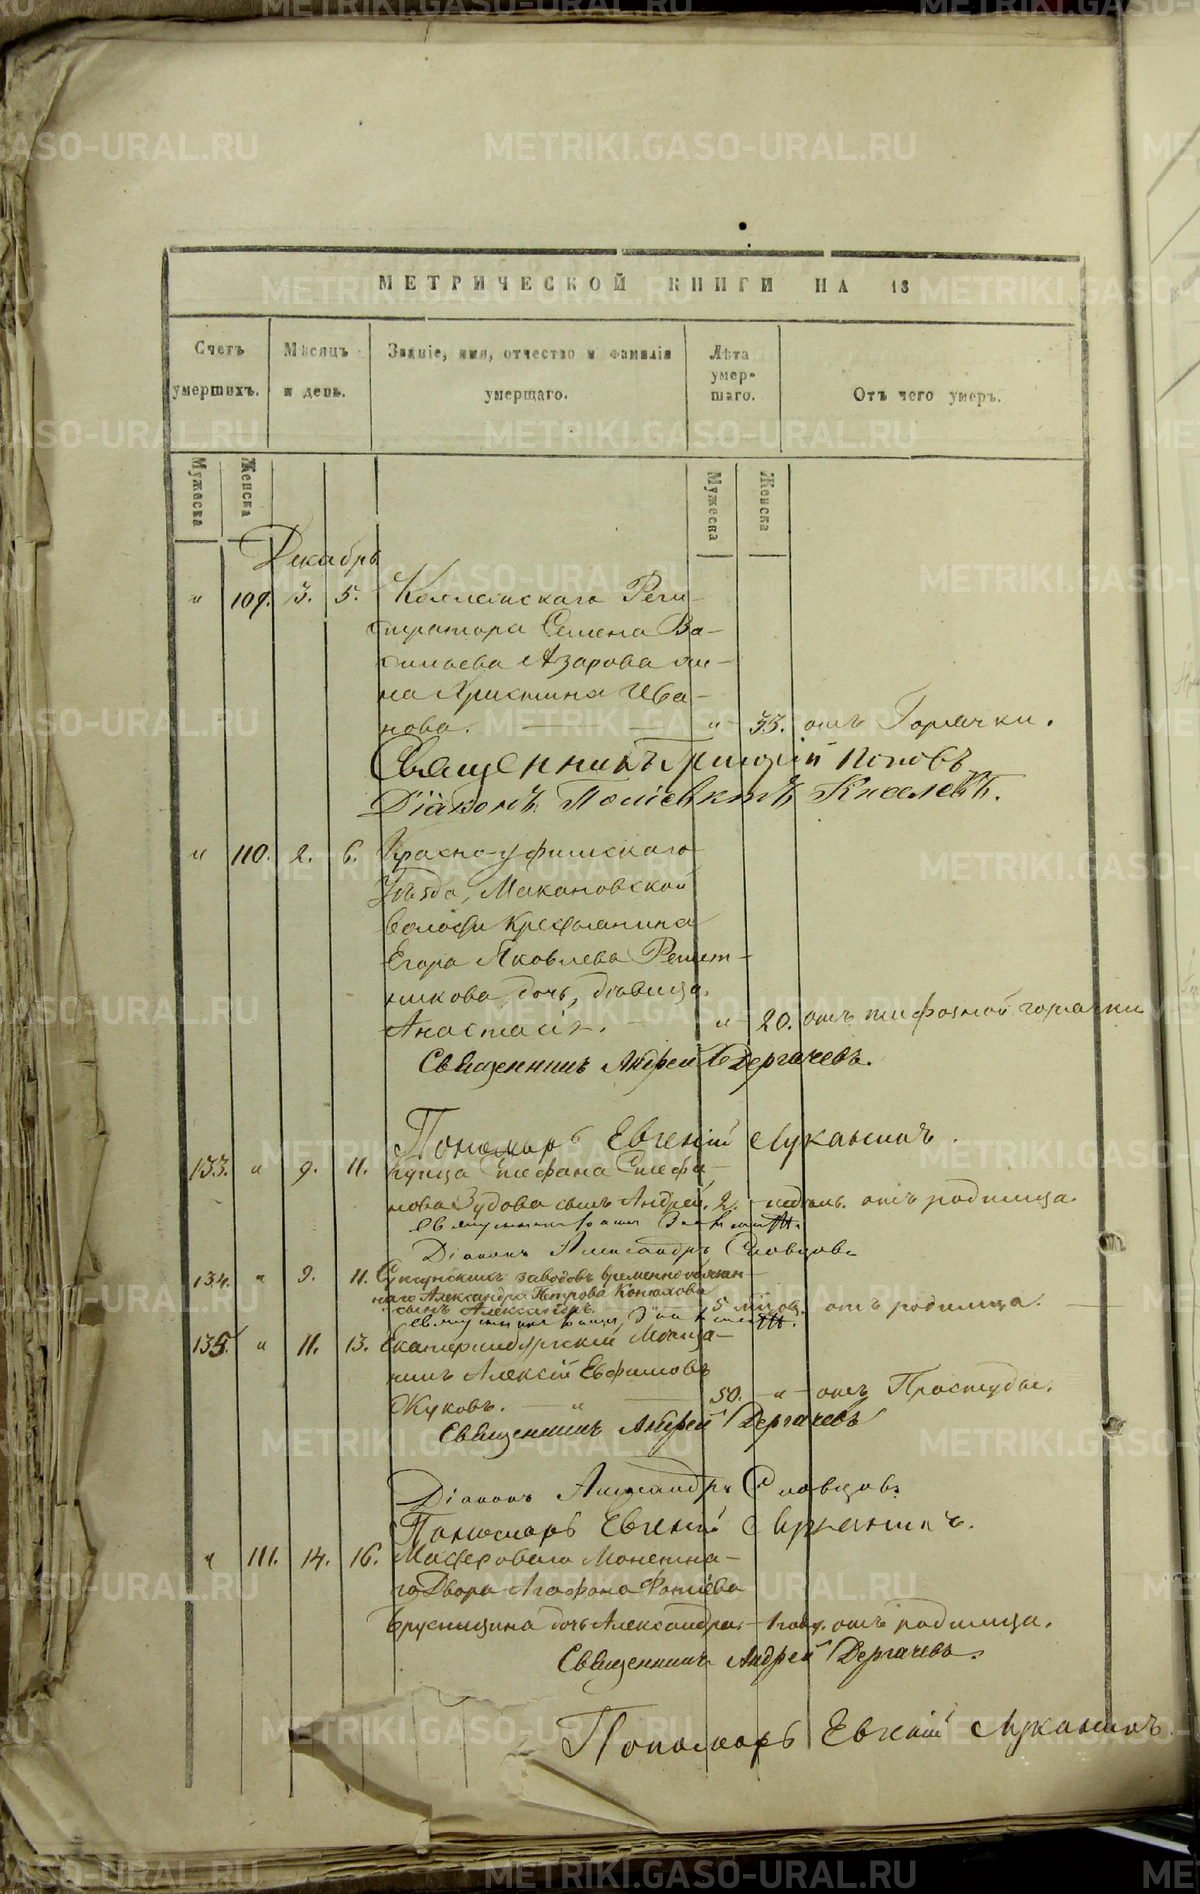 МЕТРИЧЕСКОЙ КНИГИ НА 18
Счетъ умершихъ.
Мѣсяцъ и день.
Званіе, имя, отчество и фамилія умершаго.
Лѣта умершаго.
Отъ чего умеръ.
Мужеска
Женска
Мужеска
Женска
Декабрь
" 109. 3. 5. Коллежскаго Реги-
стратора Семена Ва-
сильева Азарова же-
на Христина Ива-
нова. " 33. отъ Горячки.
Священникъ Григорій Поповъ
Діаконъ Поліевктъ Киселевъ.
" 110. 2. 6. Красноуфимскаго
Уѣзда, Макановской
волости крестьянина
Егора Яковлева Решет-
никова дочь, дѣвица,
Анастасія. " 20. отъ тифозной горячки
Священникъ Андрей Дергачевъ.
Пономарь Евгеній Луканинъ.
133. " 9. 11. Купца Стефана Стефа-
нова Зудова сынъ Андрей. 2. недѣль. отъ родимца.
Діаконъ Александръ Словцовъ
134. " 9. 11. Суксунскихъ заводовъ временнообязан-
наго Александра Петрова Конюхова
сынъ Александръ. 5 мѣсяц. отъ родимца.
135. " 11. 13. Екатеринбургскій Мѣща-
нинъ Алексій Евфимовъ
Жуковъ. " 50. " отъ Простуды.
Священникъ Андрей Дергачевъ
Діаконъ Александръ Словцовъ
Пономарь Евгеній Луканинъ.
" 111. 14. 16. Мастероваго Монетна-
го Двора Агафона Фотіева
Брусницына дочь Александра. 1 году. отъ родимца.
Священникъ Андрей Дергачевъ.
Пономарь Евгеній Луканинъ.
METRIKI.GASO-URAL.RU